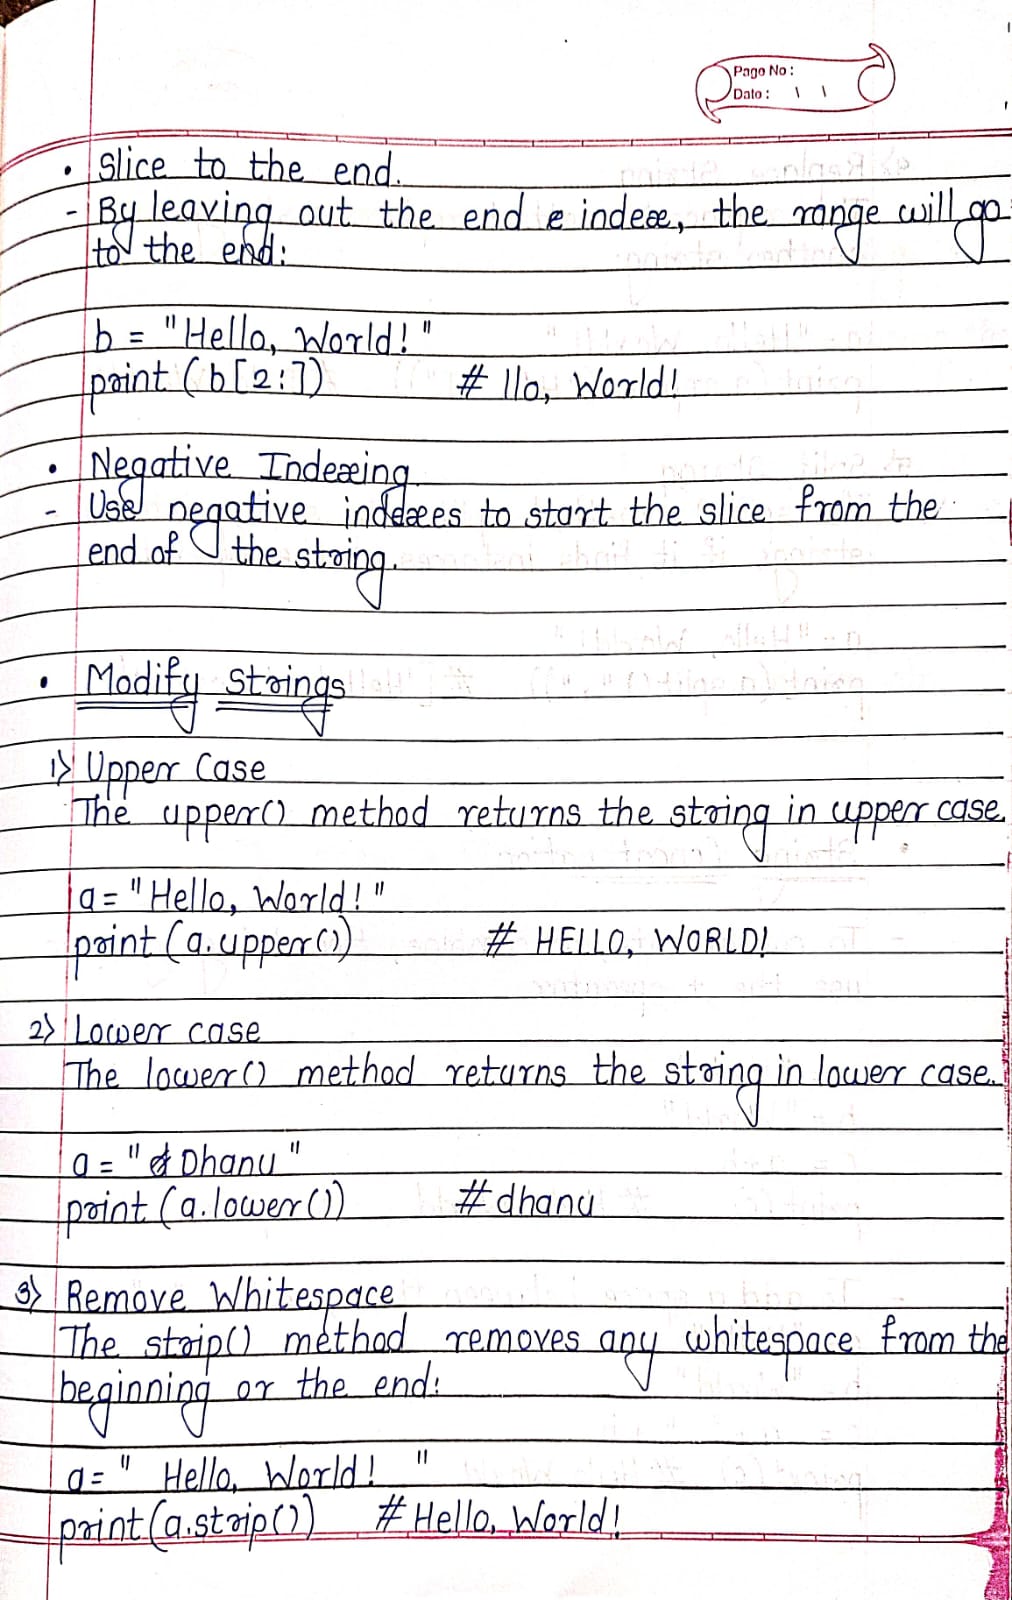 Page No:
Date: \ \
• Slice to the end.
- By leaving out the end e index, the range will go
to the end:
b = "Hello, World!"
print (b[2:])    # llo, World!
• Negative Indexing
- Use negative indexes to start the slice from the
end of the string.
• Modify Strings
1) Upper Case
The upper() method returns the string in upper case.
a = "Hello, World!"
print (a.upper())    # HELLO, WORLD!
2) Lower case
The lower() method returns the string in lower case.
a = "Dhanu"
print (a.lower())    # dhanu
3) Remove Whitespace
The strip() method removes any whitespace from the
beginning or the end:
a = " Hello, World! "
print(a.strip())    # Hello, World!